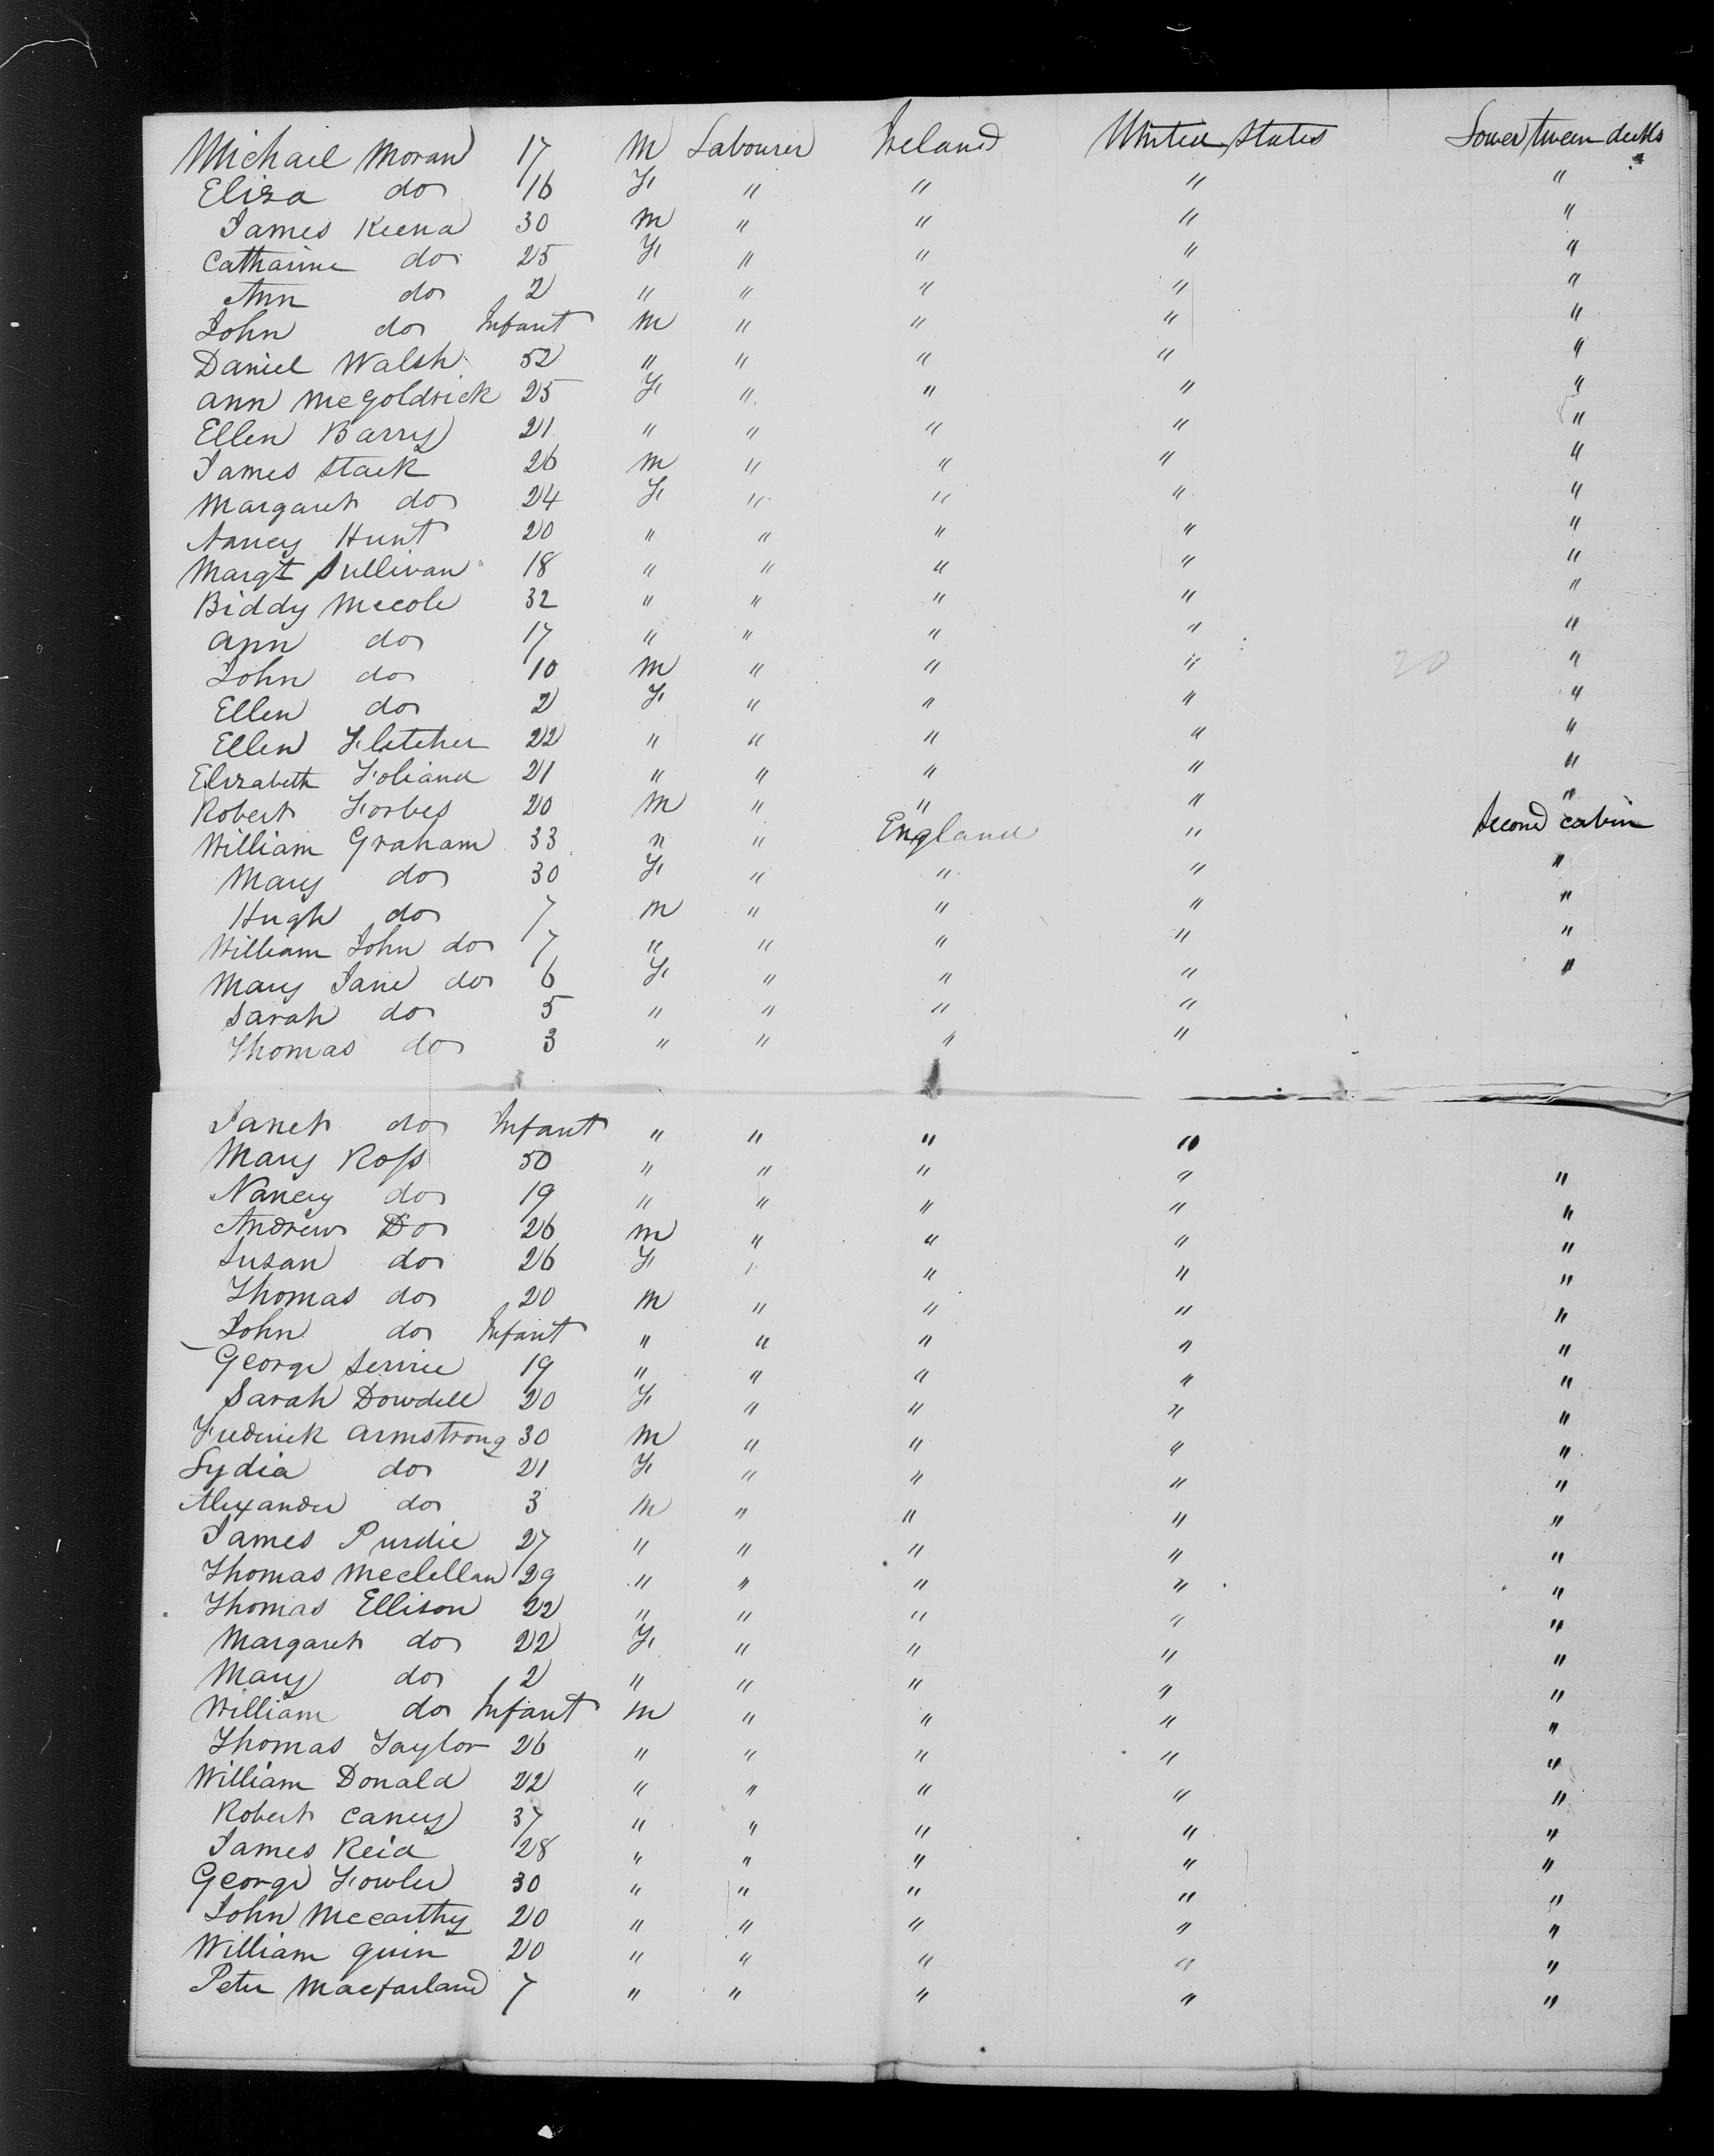 Michael Moran 17 M Labourer Ireland United States Lower tween decks
Eliza do 16 F " " " "
James Keena 30 M " " " "
Catharine do 25 F " " " "
Ann do 2 " " " " "
John do Infant M " " " "
Daniel Walsh 52 " " " " "
Ann McGoldrick 25 F " " " "
Ellen Barry 21 " " " " "
James Stack 26 M " " " "
Margaret do 24 F " " " "
Nancy Hunt 20 " " " " "
Margt Sullivan 18 " " " " "
Biddy McCole 32 " " " " "
Ann do 17 " " " " "
John do 10 M " " " 20 "
Ellen do 2 F " " " "
Ellen Fletcher 22 " " " " "
Elizabeth Foliand 21 " " " " "
Robert Forbes 20 M " " " "
William Graham 33 " " England " Second cabin
Mary do 30 F " " " "
Hugh do 7 M " " " "
William John do 7 " " " " "
Mary Jane do 6 F " " " "
Sarah do 5 " " " "
Thomas do 3 " " " "
Janet do Infant " " " "
Mary Ross 50 " " " " "
Nancy do 19 " " " " "
Andrew Do 26 M " " " "
Susan do 26 F " " " "
Thomas do 20 M " " " "
John do Infant " " " " "
George Service 19 " " " " "
Sarah Dowdell 20 F " " " "
Frederick Armstrong 30 M " " " "
Lydia do 21 F " " " "
Alexander do 3 M " " " "
James Purdie 27 " " " " "
Thomas McClellan 29 " " " " "
Thomas Ellison 22 " " " " "
Margaret do 22 F " " " "
Mary do 2 " " " " "
William do Infant M " " " "
Thomas Taylor 26 " " " " "
William Donald 22 " " " " "
Robert Caney 37 " " " " "
James Reid 28 " " " " "
George Fowler 30 " " " " "
John McCarthy 20 " " " " "
William Quin 20 " " " " "
Peter Macfarland 7 " " " " "